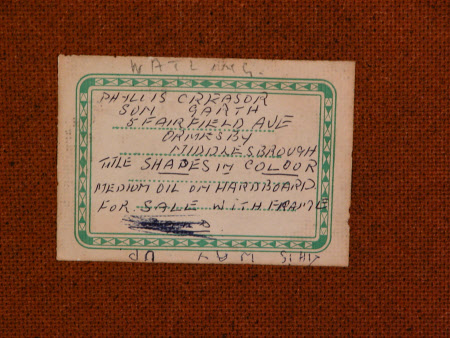 PHYLLIS CREASOR
SON GARTH
5 FAIRFIELD AVE
ORMESBY
MIDDLESBROUGH
TITLE SHAPES IN COLOUR
MEDIUM OIL ON HARDBOARD
FOR SALE WITH FRAME
THIS WAY UP